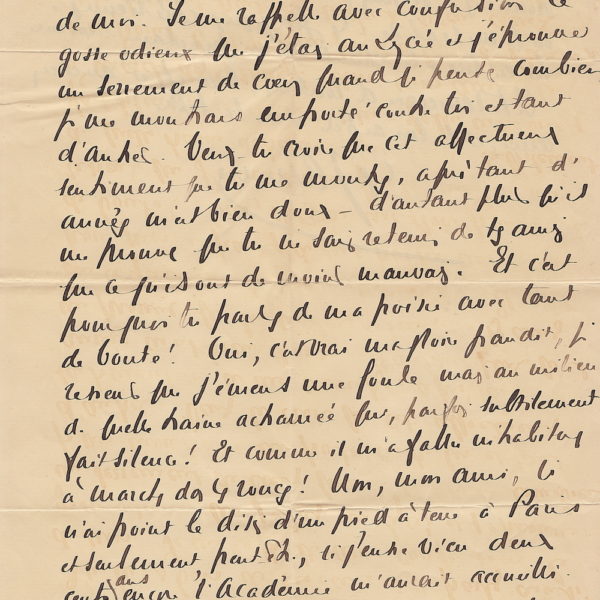 de moi. Je me rappelle avec confusion le
gosse odieux que j'étais au Lycée et j'éprouve
un serrement de cœur quand je pense combien
je me montrais emporté contre toi et tant
d'autres. Veux-tu croire que cet affectueux
sentiment que tu me montres, après tant d'
années m'est bien doux – d'autant plus qu'il
me prouve que tu ne sais retenir de tes amis
que ce qu'ils ont de moins mauvais. Et c'est
pourquoi tu parles de ma poésie avec tant
de bonté! Oui, c'est vrai ma gloire grandit, je
ressens que j'émeus une foule mais au milieu
de quelle haine acharnée qui, parfois subtilement
fait silence! Et comme il m'a fallu m'habituer
à marcher dans les ronces! Non, mon ami, je
n'ai point le désir d'un pied à terre à Paris
et seulement, peut-être, si j'eusse vécu deux
cents ans encore l'Académie m'aurait accueilli.